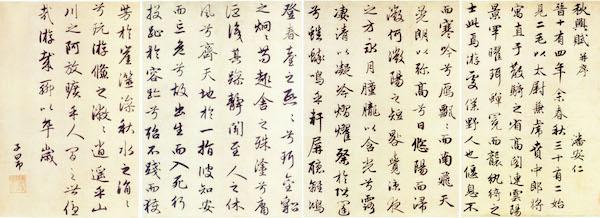 秋興賦 并序
潘安仁
晉十有四年余春秋三十有二始
見二毛以太尉掾兼虎賁中郎將
寓直于散騎之省高閣連雲陽
景罕曜珥蟬冕而襲紈綺之
士此焉游處僕野人也偃息不
而寒吟兮雁飄飄而南飛天
晃朗以彌高兮日悠陽而浸
微何微陽之短晷覺涼夜
之方永月朣朧以含光兮露
淒清以凝冷熠燿粲於階闥
兮蟋蟀鳴乎軒屏聽離鴻
登春臺之熙熙兮珥金貂
之炯炯苟趣舍之殊塗兮庸
詎識其躁靜聞至人之休
風兮齊天地於一指彼知安
而忘危兮故出生而入死行
投趾於容跡兮殆不踐而獲
芳於崖澨澡秋水之涓涓
兮玩游鯈之潎潎逍遙乎山
川之阿放曠乎人間之世優
哉游哉聊以卒歲
子昂